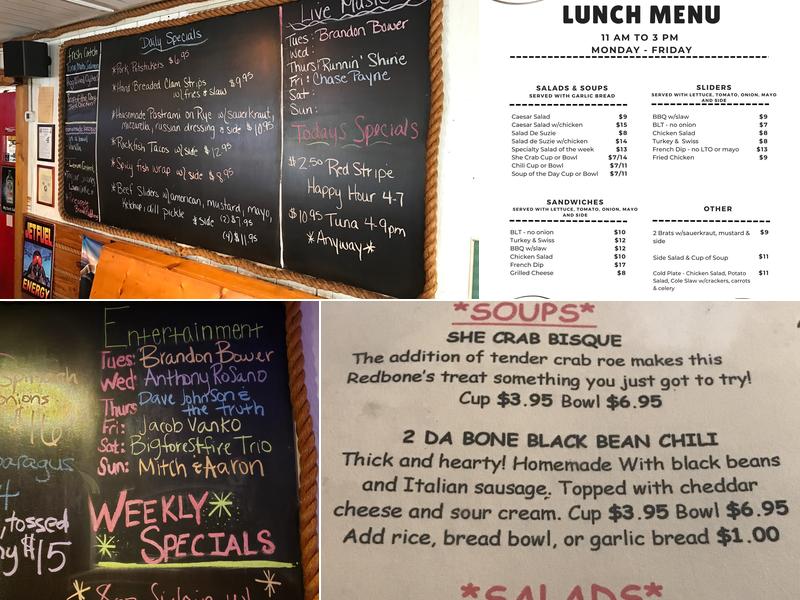 Fresh Catch
Daily Specials
*Pork Potstickers $6.95
*Hand Breaded Clam Strips
w/fries & slaw $9.95
*Housmade Pastrami on Rye w/sauerkraut,
mozzarella, russian dressing & side $10.95
*Rockfish Tacos w/ side $12.95
*Spicy fish wrap w/ side $8.95
*Beef Sliders w/american, mustard, mayo,
Ketchup, dill pickle & side (2) $7.95
(4) $11.95
JETFUEL
ENERGY
Live Music
Tues: Brandon Bower
Wed:
Thurs: Runnin' Shine
Fri: Chase Payne
Sat:
Sun:
Todays Specials
$2.50 Red Stripe
Happy Hour 4-7
$10.95 Tuna 4-9pm
*Anyway*
LUNCH MENU
11 AM TO 3 PM
MONDAY - FRIDAY
SALADS & SOUPS
SERVED WITH GARLIC BREAD
Caesar Salad $9
Caesar Salad w/chicken $15
Salad De Suzie $8
Salad de Suzie w/chicken $14
Specialty Salad of the week $13
She Crab Cup or Bowl $7/14
Chili Cup or Bowl $7/11
Soup of the Day Cup or Bowl $7/11
SLIDERS
SERVED WITH LETTUCE, TOMATO, ONION, MAYO
AND SIDE
BBQ w/slaw $9
BLT - no onion $7
Chicken Salad $8
Turkey & Swiss $8
French Dip - no LTO or mayo $13
Fried Chicken $9
SANDWICHES
SERVED WITH LETTUCE, TOMATO, ONION, MAYO
AND SIDE
BLT - no onion $10
Turkey & Swiss $12
BBQ w/slaw $12
Chicken Salad $10
French Dip $17
Grilled Cheese $8
OTHER
2 Brats w/sauerkraut, mustard & $9
side
Side Salad & Cup of Soup $11
Cold Plate - Chicken Salad, Potato $11
Salad, Cole Slaw w/crackers, carrots
& celery
Spinach
onions
$16
paragus
4
, tossed
$15
Entertainment
Tues: Brandon Bower
Wed: Anthony RoSano
Thurs Dave Johnson &
the truth
Fri: Jacob Vanko
Sat: Bigforestfire Trio
Sun: Mitch & Aaron
WEEKLY
SPECIALS
*SOUPS*
SHE CRAB BISQUE
The addition of tender crab roe makes this
Redbone's treat something you just got to try!
Cup $3.95 Bowl $6.95
2 DA BONE BLACK BEAN CHILI
Thick and hearty! Homemade With black beans
and Italian sausage. Topped with cheddar
cheese and sour cream. Cup $3.95 Bowl $6.95
Add rice, bread bowl, or garlic bread $1.00
*SALADS*